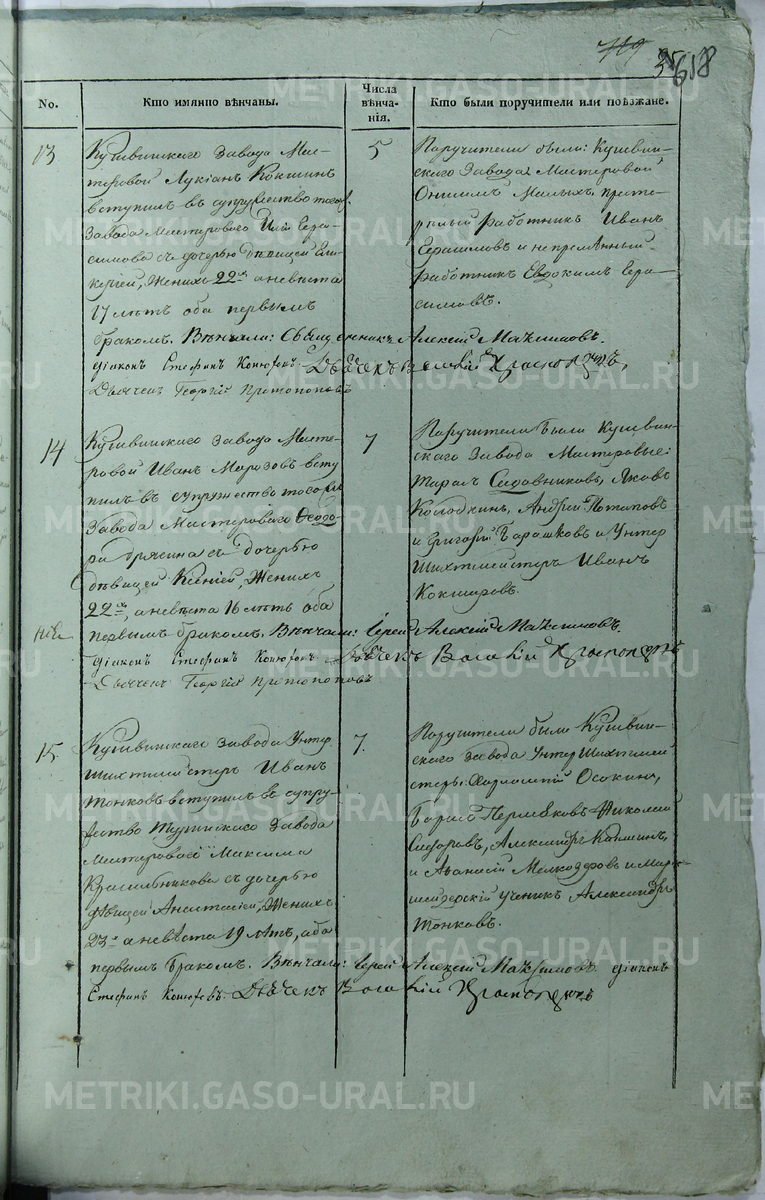 719 618
No. Кто имянно вѣнчаны. Числа вѣнча-нія. Кто были поручители или поѣзжане.
13
Кушвинскаго завода Мас-
теровой Лукіанъ Кокшинъ
вступилъ въ супружество тогож
завода Мастероваго Гера-
симова съ дочерью дѣвицей
Женихъ 22хъ а невѣста
17 лѣтъ оба первымъ
бракомъ. Вѣнчали: Священникъ Алексій Максимовъ.
діаконъ Стефанъ Конюховъ. Дьячекъ
Дьячекъ Георгій Протопоповъ
5
Поручители были: Кушвин-
скаго завода Мастеровой
Онисимъ Малыхъ,
работникъ Иванъ
Герасимовъ и непремѣнный
работникъ Евдокимъ Гера-
симовъ.
14
Кушвинскаго завода Масте-
ровой Иванъ Морозовъ всту
пилъ въ супружество тогожъ
завода Мастероваго Ѳеодо-
ра Брясина съ дочерью
дѣвицей Ксеніей, Женихъ
22хъ, а невѣста 16 лѣтъ оба
первымъ бракомъ. Вѣнчали: Іерей Алексій Максимовъ.
діаконъ Стефанъ Конюховъ Дьячекъ
Дьячекъ Георгій Протопоповъ
7
Поручители были Кушвин-
скаго завода Мастеровые:
Тарасъ Садовниковъ, Яковъ
Колодкинъ, Андрей Потаповъ
и Григорій Барашковъ и Унтер
Шихтмейстеръ Иванъ
Кокшаровъ.
15.
Кушвинскаго завода Унтер
Шихтмейстеръ Иванъ
Тонковъ вступилъ въ супру
жество Туринскаго завода
Мастероваго Максима
Красильникова съ дочерью
дѣвицей Анастасіей, Женихъ
23хъ а невѣста 19 лѣтъ, оба
первымъ бракомъ. Вѣнчали: Іерей Алексій Максимовъ діаконъ
Стефанъ Конюховъ. Дьячекъ
7.
Поручители были Кушвин-
скаго завода Унтер Шихтмей
стеры: Харлампій Осокинъ,
Борисъ Пермяковъ Николай
Сидоровъ, Александръ Кокшинъ,
и Аѳанасій Мелкозеровъ и Марк
шейдерскій ученикъ Александръ
Тонковъ.
METRIKI.GASO-URAL.RU